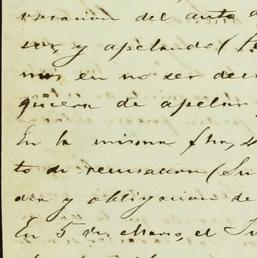 vocacion del auto a
ser, y apelando (fe
mas en no ser dec
quiera de apelar
En la misma fha, 
to de recusacion (Su
dia y obligacion de
En 5 de Enero, el Ju